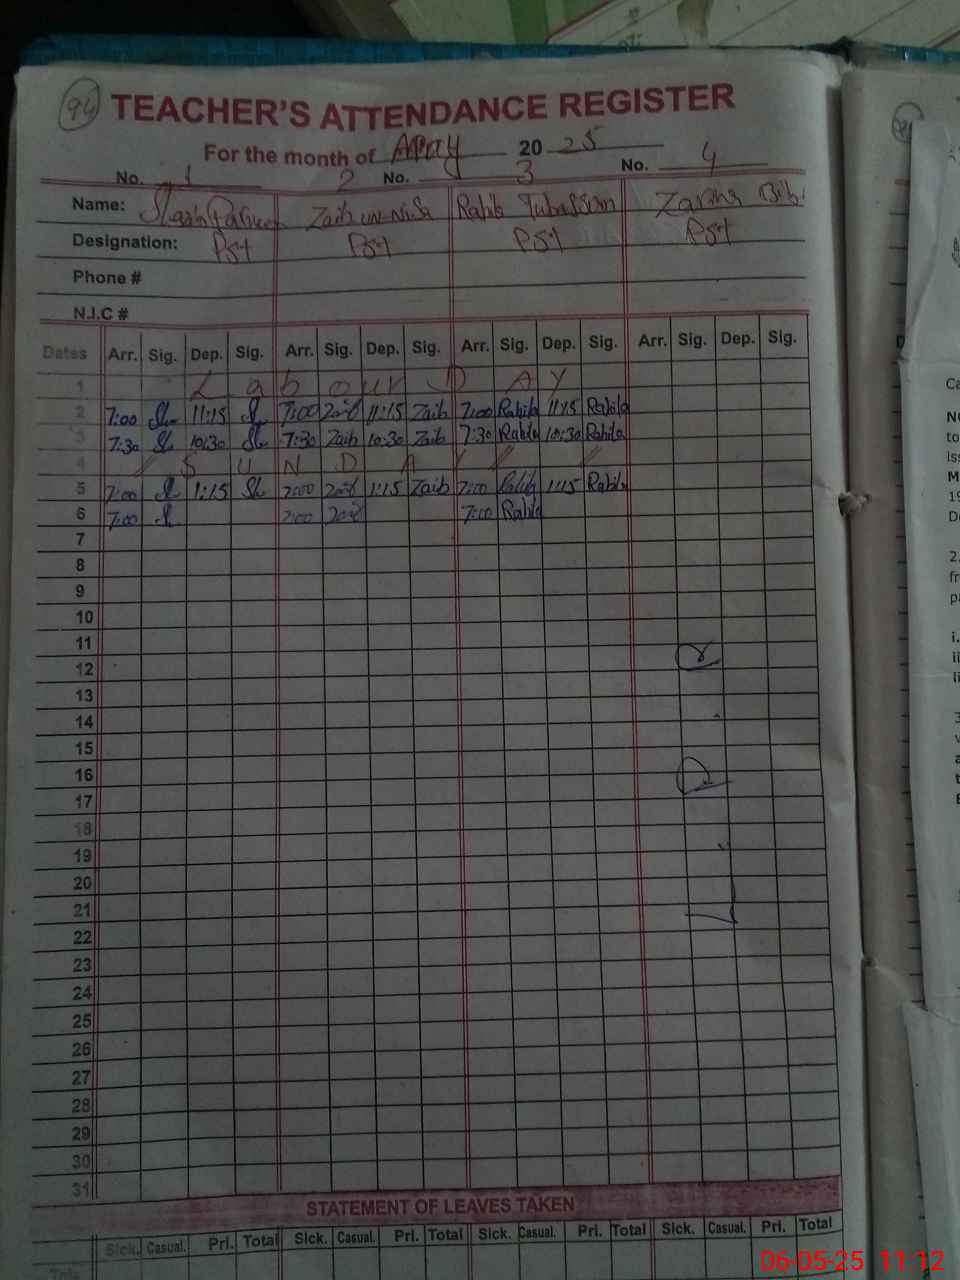 94
TEACHER'S ATTENDANCE REGISTER
For the month of 20 25
No. 1 2 No. 3 No. 4
Name: Zaib un-Nisa
Designation: PST PST PST PST
Phone #
N.I.C #
Dates Arr. Sig. Dep. Sig. Arr. Sig. Dep. Sig. Arr. Sig. Dep. Sig. Arr. Sig. Dep. Sig.
1 Labour DAY
2 7:00 Sh 11:15 7:00 Zaib 11:15 Zaib 7:00 Rabila 11:15 Rabila
3 7:30 Sh 10:30 Sh 7:30 Zaib 10:30 Zaib 7:30 Rabila 10:30 Rabila
4 // SUNDAY // //
5 7:00 1:15 Sh 7:00 Zaib 1:15 Zaib 7:00 Rabila 1:15 Rabila
6 7:00 7:00 Zaib 7:00 Rabila
7
8
9
10
11
12
13
14
15
16
17
18
19
20
21
22
23
24
25
26
27
28
29
30
31
STATEMENT OF LEAVES TAKEN
Sick. Casual. Pri. Total Sick. Casual. Pri. Total Sick. Casual. Pri. Total Sick. Casual. Pri. Total
06-05-25 11:12